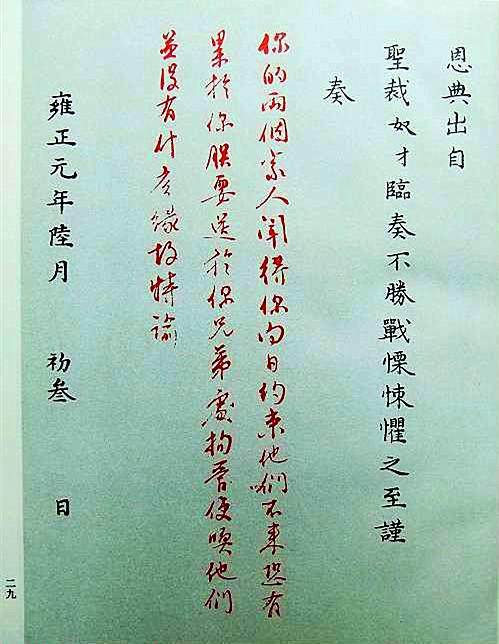 恩典出自
聖裁奴才臨奏不勝戰慄悚懼之至謹
奏
你的兩個家人聞得你向日約束他們不來恐有
累於你朕要送於你兄弟處拘管使喚他們
並没有什広緣故特諭
雍正元年陸月 初叁 日
二九